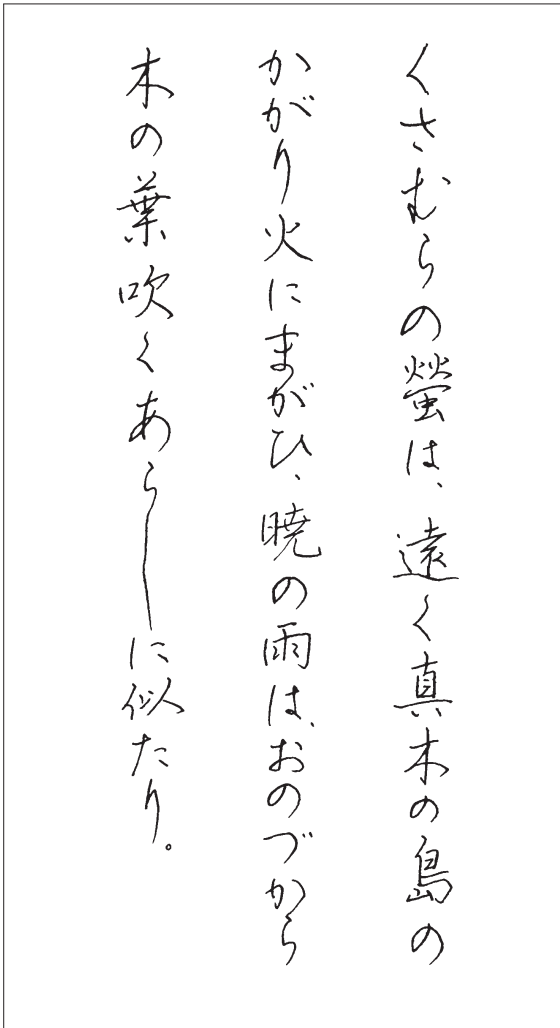 くさむらの螢は、遠く真木の島の
かがり火にまがひ、暁の雨は、おのづから
木の葉吹くあらしに似たり。